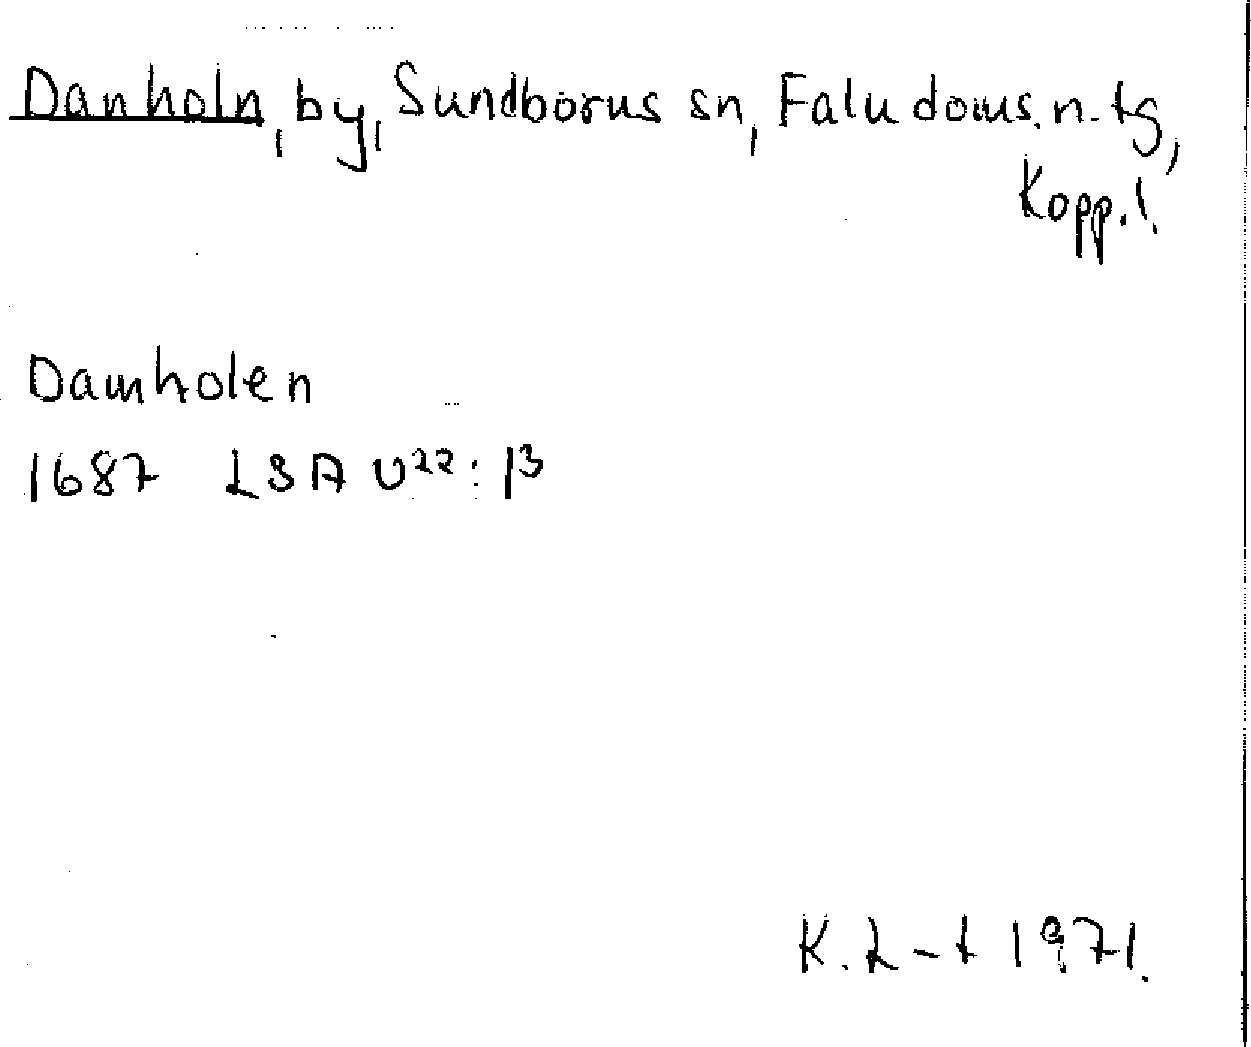 Danholn, by, Sundborns sn, Falu doms. n. tg,
Kopp. l.
Damholen
1687 LSA U22: 13
K. L-t 1971.